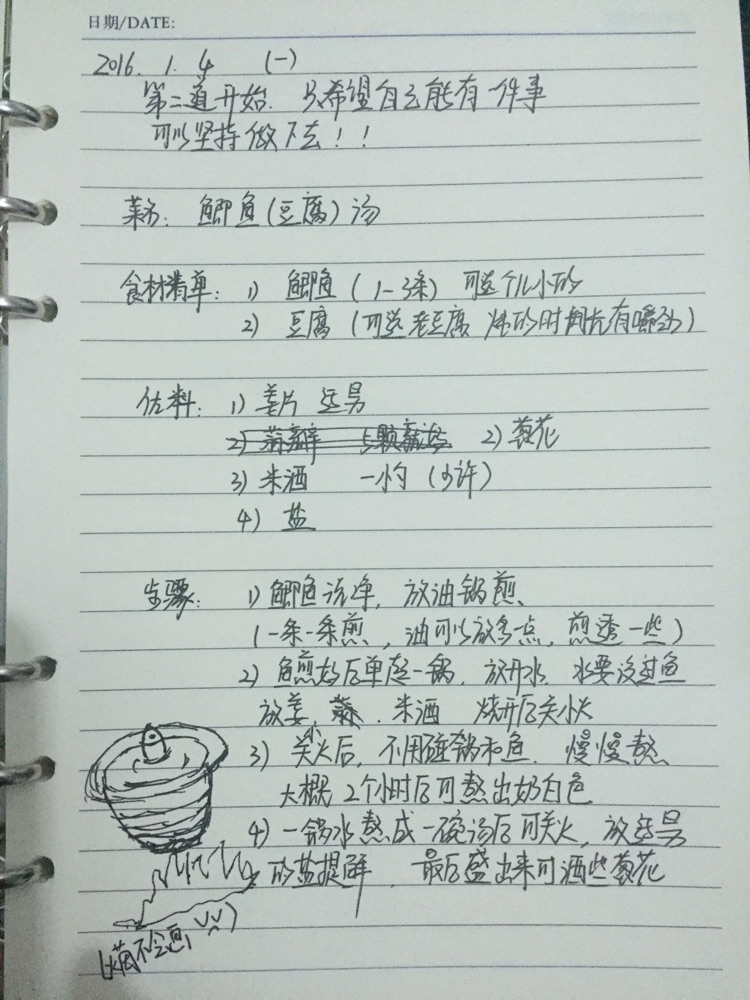 日期/DATE:
2016. 1. 4 (一)
第二道开始. 只希望自己能有一件事
可以坚持做下去！！
菜名: 鲫鱼(豆腐)汤
食材清单: 1) 鲫鱼 (1-3条) 可选个儿小的
2) 豆腐 (可选老豆腐 炖的时间长有嚼劲)
佐料: 1) 姜片 适量
2) 蒜瓣 5颗 2) 葱花
3) 米酒 一小勺 (少许)
4) 盐
步骤: 1) 鲫鱼洗净, 放油锅煎.
(一条一条煎, 油可以放多一点, 煎透一些)
2) 鱼煎好后单起一锅, 放开水. 水要没过鱼
放姜, 蒜, 米酒 烧开后关小火
3) 关小火后, 不用碰锅和鱼. 慢慢熬.
大概2个小时后可熬出奶白色
4) 一锅水熬成一碗汤后可关火, 放适量
的盐提鲜. 最后盛出来可洒些葱花
(火焰不会画)